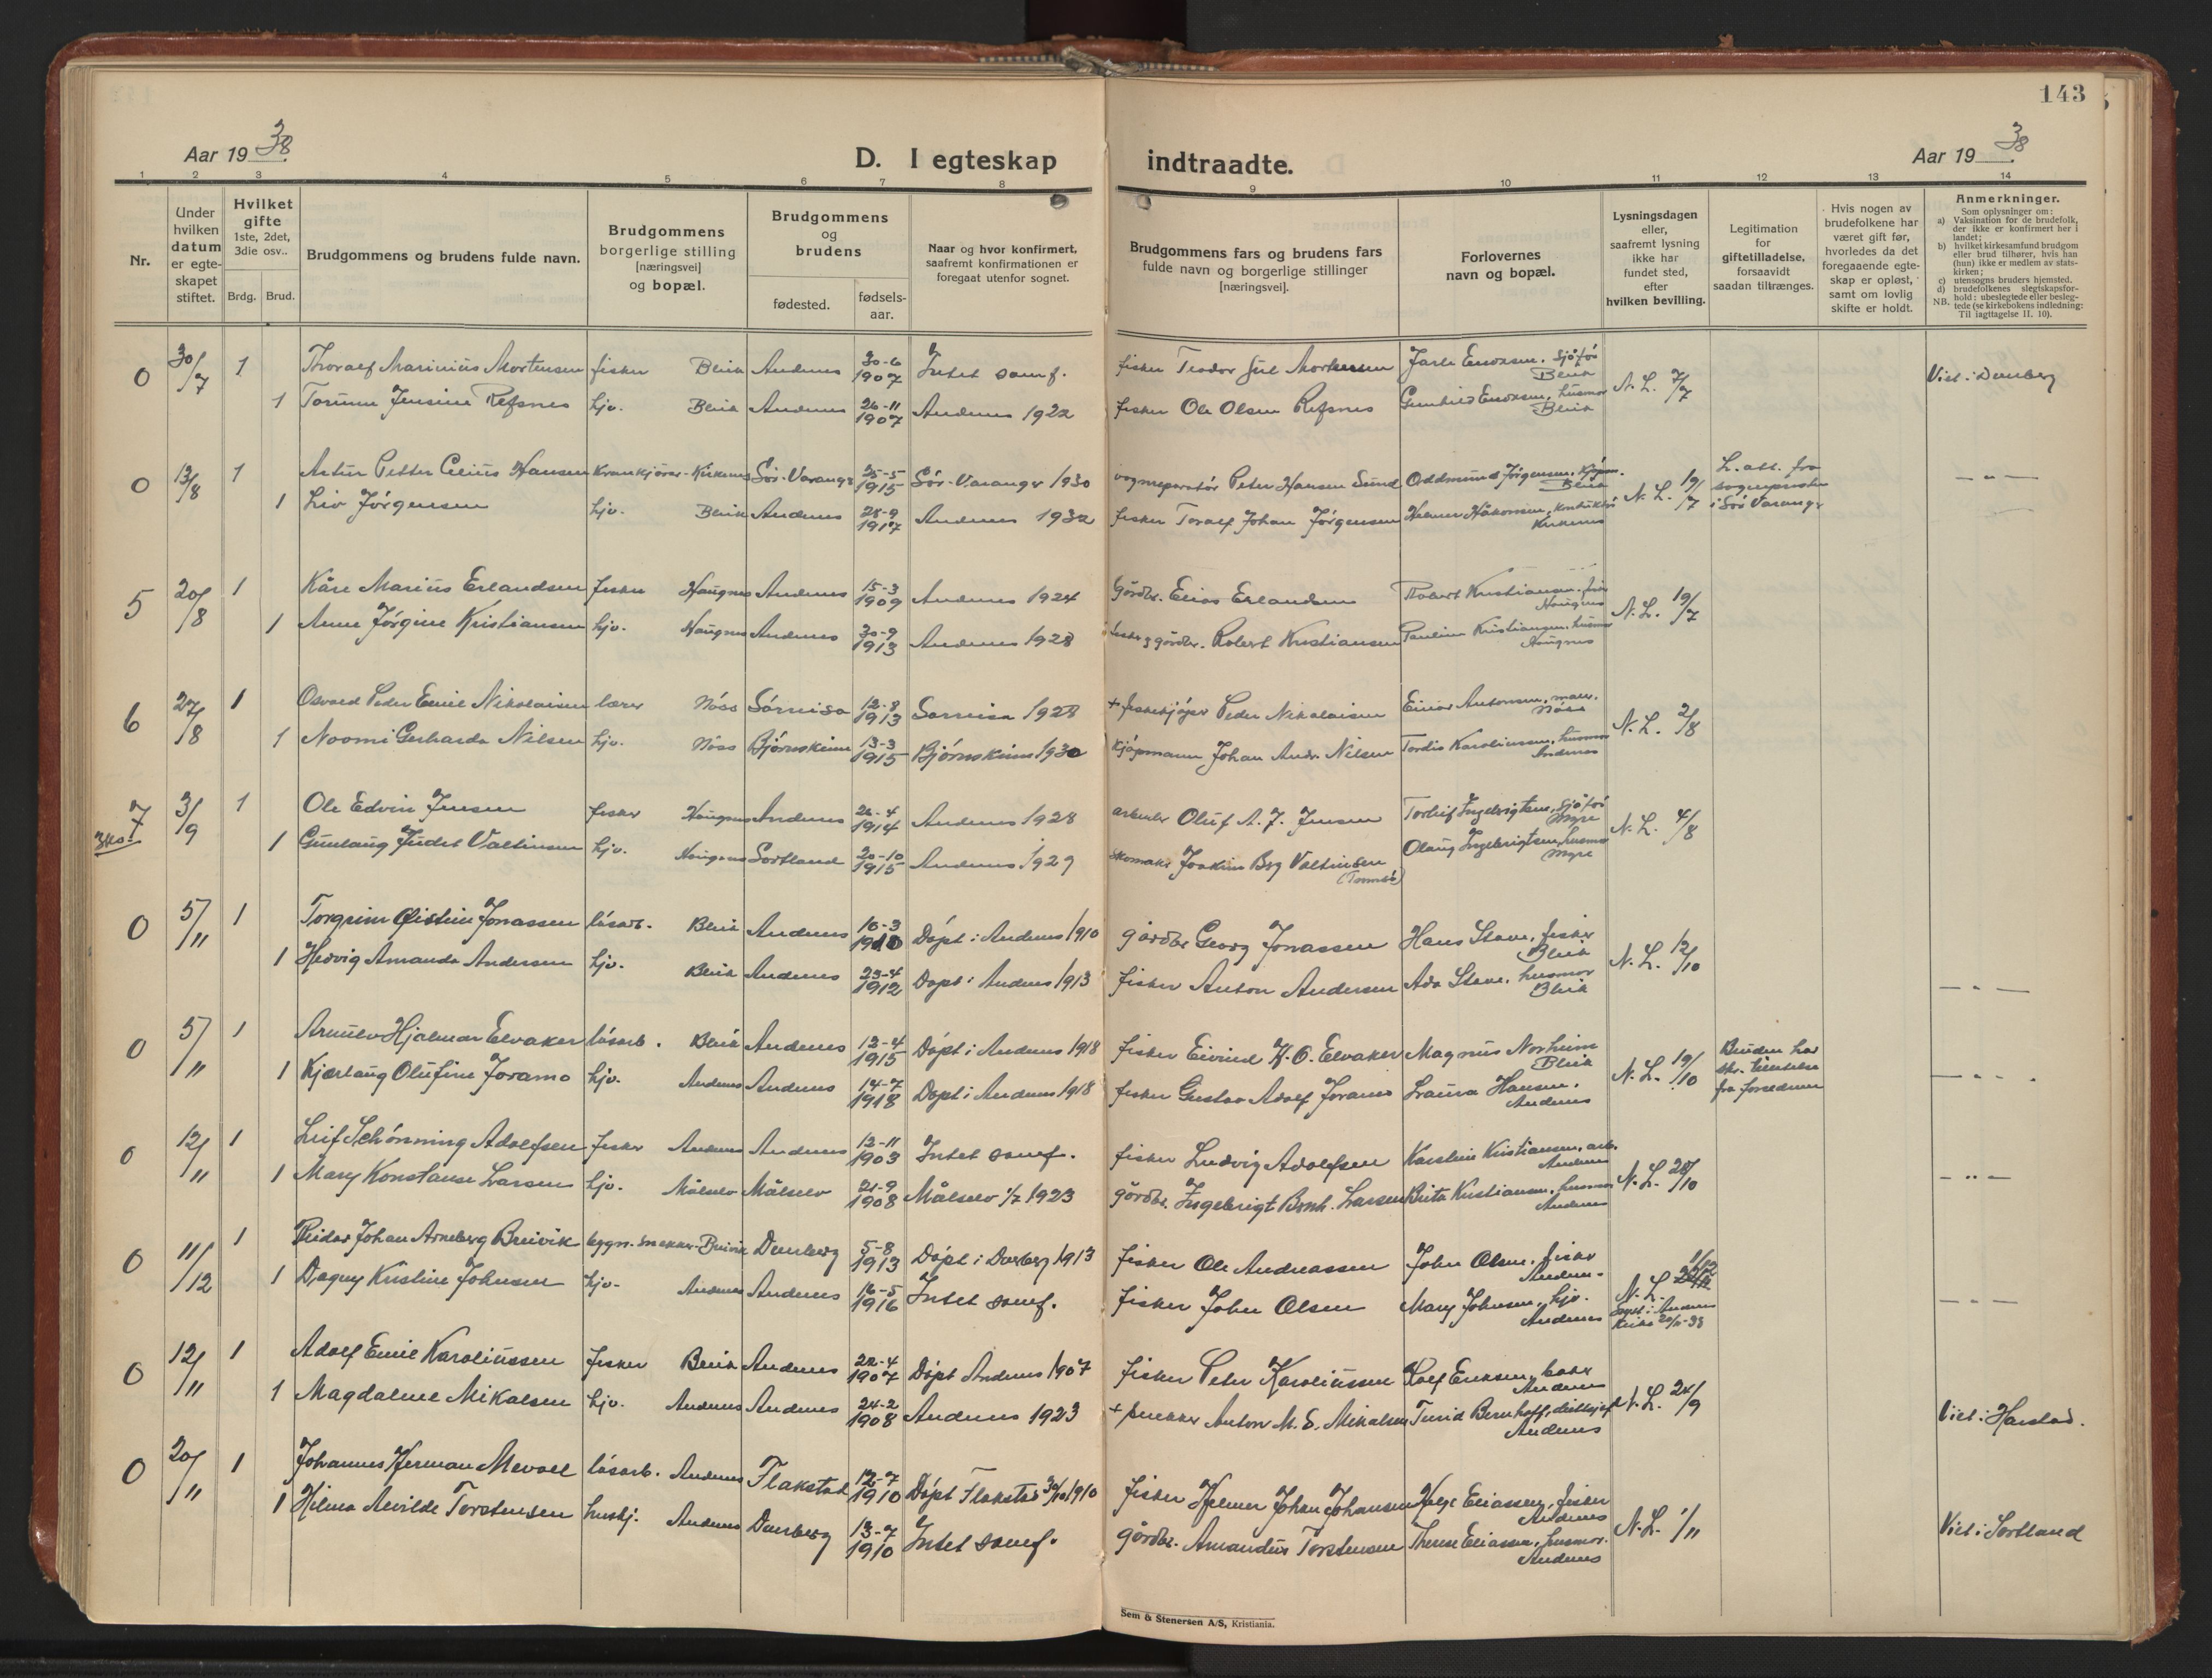 143
Aar 1938.
D. I egteskap
indtraadte.
Aar 1938.
1 2 3 4 5 6 7 8 9 10 11 12 13 14
Nr.
Under hvilken datum er egteskapet stiftet.
Hvilket gifte 1ste, 2det, 3die osv..
Brdg. Brud.
Brudgommens og brudens fulde navn.
Brudgommens borgerlige stilling [næringsvei] og bopæl.
Brudgommens og brudens
fødested.
fødsels-aar.
Naar og hvor konfirmert, saafremt konfirmationen er foregaat utenfor sognet.
Brudgommens fars og brudens fars fulde navn og borgerlige stillinger [næringsvei].
Forlovernes navn og bopæl.
Lysningsdagen eller, saafremt lysning ikke har fundet sted, efter hvilken bevilling.
Legitimation for giftetilladelse, forsaavidt saadan tiltrænges.
Hvis nogen av brudefolkene har været gift før, hvorledes da det foregaaende egteskap er opløst, samt om lovlig skifte er holdt.
Anmerkninger.
Som oplysninger om:
a) Vaksination for de brudefolk, der ikke er konfirmert her i landet;
b) hvilket kirkesamfund brudgom eller brud tilhører, hvis han (hun) ikke er medlem av statskirken;
c) utensogns bruders hjemsted.
d) brudefolkenes slegtskapsforhold: ubeslegtede eller beslegtede (se kirkebokens indledning:
NB. Til iagttagelse II. 10).
0 30/7 1 Thoralf Marinius Mortensen fisker Bleik Andenes 30-6 1907 Intet samf. fisker Teodor Jul Mortensen Jarle Enoksen, sjåfør Bleik N. L. 7/7
1 Torunn Jensine Refsnes hjv. Bleik Andenes 26-11 1907 Andenes 1922 fisker Ole Olsen Refsnes Gunhild Enoksen, husmor Bleik
0 13/8 1 Artur Petter Celius Hansen Kirkenes Sør-Varanger 25-5 1915 Sør-Varanger 1930 Peter Hansen Sund Oddmund Jørgensen, Bleik N. L. 19/7 L. att. fra sognepresten i Sør Varanger — " —
1 Liv Jørgensen hjv. Bleik Andenes 28-9 1917 Andenes 1932 fisker Toralf Johan Jørgensen Håkonsen, Kirkenes
5 20/8 1 Kåre Marius Erlandsen fisker Haugnes Andenes 15-3 1909 Andenes 1924 gårdbr. Elias Erlandsen Robert Kristiansen, Haugnes N. L. 19/7
1 Anne Jørgine Kristiansen hjv. Haugnes Andenes 30-9 1913 Andenes 1928 fisker & gårdbr. Robert Kristiansen Pauline Kristiansen, husmor Haugnes
6 27/8 1 Osvald Peder Emil Nikolaisen lærer Nöss Sørreisa 12-8 1913 Sørreisa 1928 + fiskekjøper Peder Nikolaisen Einar Antonsen, maler. Nöss N. L. 2/8
1 Noomi Gerharda Nilsen hjv. Nöss Bjørnskinn 13-3 1915 Bjørnskinn 1930 kjøpmann Johan Andr. Nilsen Tordis Karoliussen, husmor Andenes
7 3/9 1 Ole Edvin Jensen fisker Haugnes Andenes 26-4 1914 Andenes 1928 arbeider Oluf A. J. Jensen Torleif Ingebrigtsen, sjåfør Myre N. L. 4/8
1 Gunlaug Judit Valtinsen hjv. Haugnes Sortland 20-10 1915 Andenes 1929 skomaker Joakim Valtinsen (Tromsö) Olaug Ingebrigtsen, husmor Myre
0 5/11 1 Torgrim Øistein Jonassen løsarb. Bleik Andenes 10-3 1910 Døpt i Andenes 1910 gårdbr Georg Jonassen Hans Stave, fisker Bleik N. L. 12/10
1 Hedvig Amanda Andersen hjv. Bleik Andenes 23-4 1912 Døpt i Andenes 1913 fisker Anton Andersen Ada Stave, husmor Bleik — " —
0 5/11 1 Arnulv Hjalmar Elvaker løsarb. Bleik Andenes 12-4 1915 Døpt i Andenes 1918 fisker Eivind K. O. Elvaker Magnus Norheim Bleik N. L. 19/10 Bruden har skr. tilladelse fra forsednren
1 Kjærlaug Olufine Joramo hjv. Andenes Andenes 14-7 1918 Døpt i Andenes 1918 fisker Gustav Adolf Joramo Laura Hansen, Andenes — " —
0 12/11 1 Leif Schönning Adolfsen fisker Andenes Andenes 12-11 1903 Intet samf. fisker Ludvig Adolfsen Kristiansen, arb. Andenes N. L. 20/10
1 Mary Konstanse Larsen hjv. Målselv Målselv 21-9 1908 Målselv 1/7 1923 gårdbr. Ingebrigt Larsen Brita Kristiansen, husmor Andenes — " —
0 11/12 1 Reidar Johan Arneberg Breivik bygn. snekker Breivik Dverberg 5-8 1913 Døpt i Dverberg 1913 fisker Ole Andreassen John Olsen, fisker Andenes N. L. 1/12
1 Dagny Kristine Johnsen hjv. Andenes Andenes 16-5 1916 Intet samf. fisker John Olsen Mary Johnsen, hjv. Andenes Lyst i Andenes kirke 20/11-38 — " —
0 12/11 1 Adolf Emil Karoliussen fisker Bleik Andenes 22-4 1907 Døpt Andenes 1907 fisker Peter Karoliussen Rolf Eriksen, baker Andenes
1 Magdalene Mikalsen hjv. Andenes Andenes 24-2 1908 Andenes 1923 + snekker Anton M. S. Mikalsen Turid Bernhoff, Andenes N. L. 24/9 Viet i Harstad.
0 20/11 1 Johannes Herman Mevoll løsarb. Andenes Flakstad 12-7 1910 Døpt Flakstad 30/10 1910 fisker Hjelmer Johan Johansen Helge Eliassen, fisker Andenes
1 Hilma Alvilde Torstensen hushj. Andenes Dverberg 13-7 1910 Intet samf. gårdbr. Amandus Torstensen Therese Eliassen, husmor. Andenes N. L. 1/11 Viet i Sortland
Sem & Stenersen A/S, Kristiania.